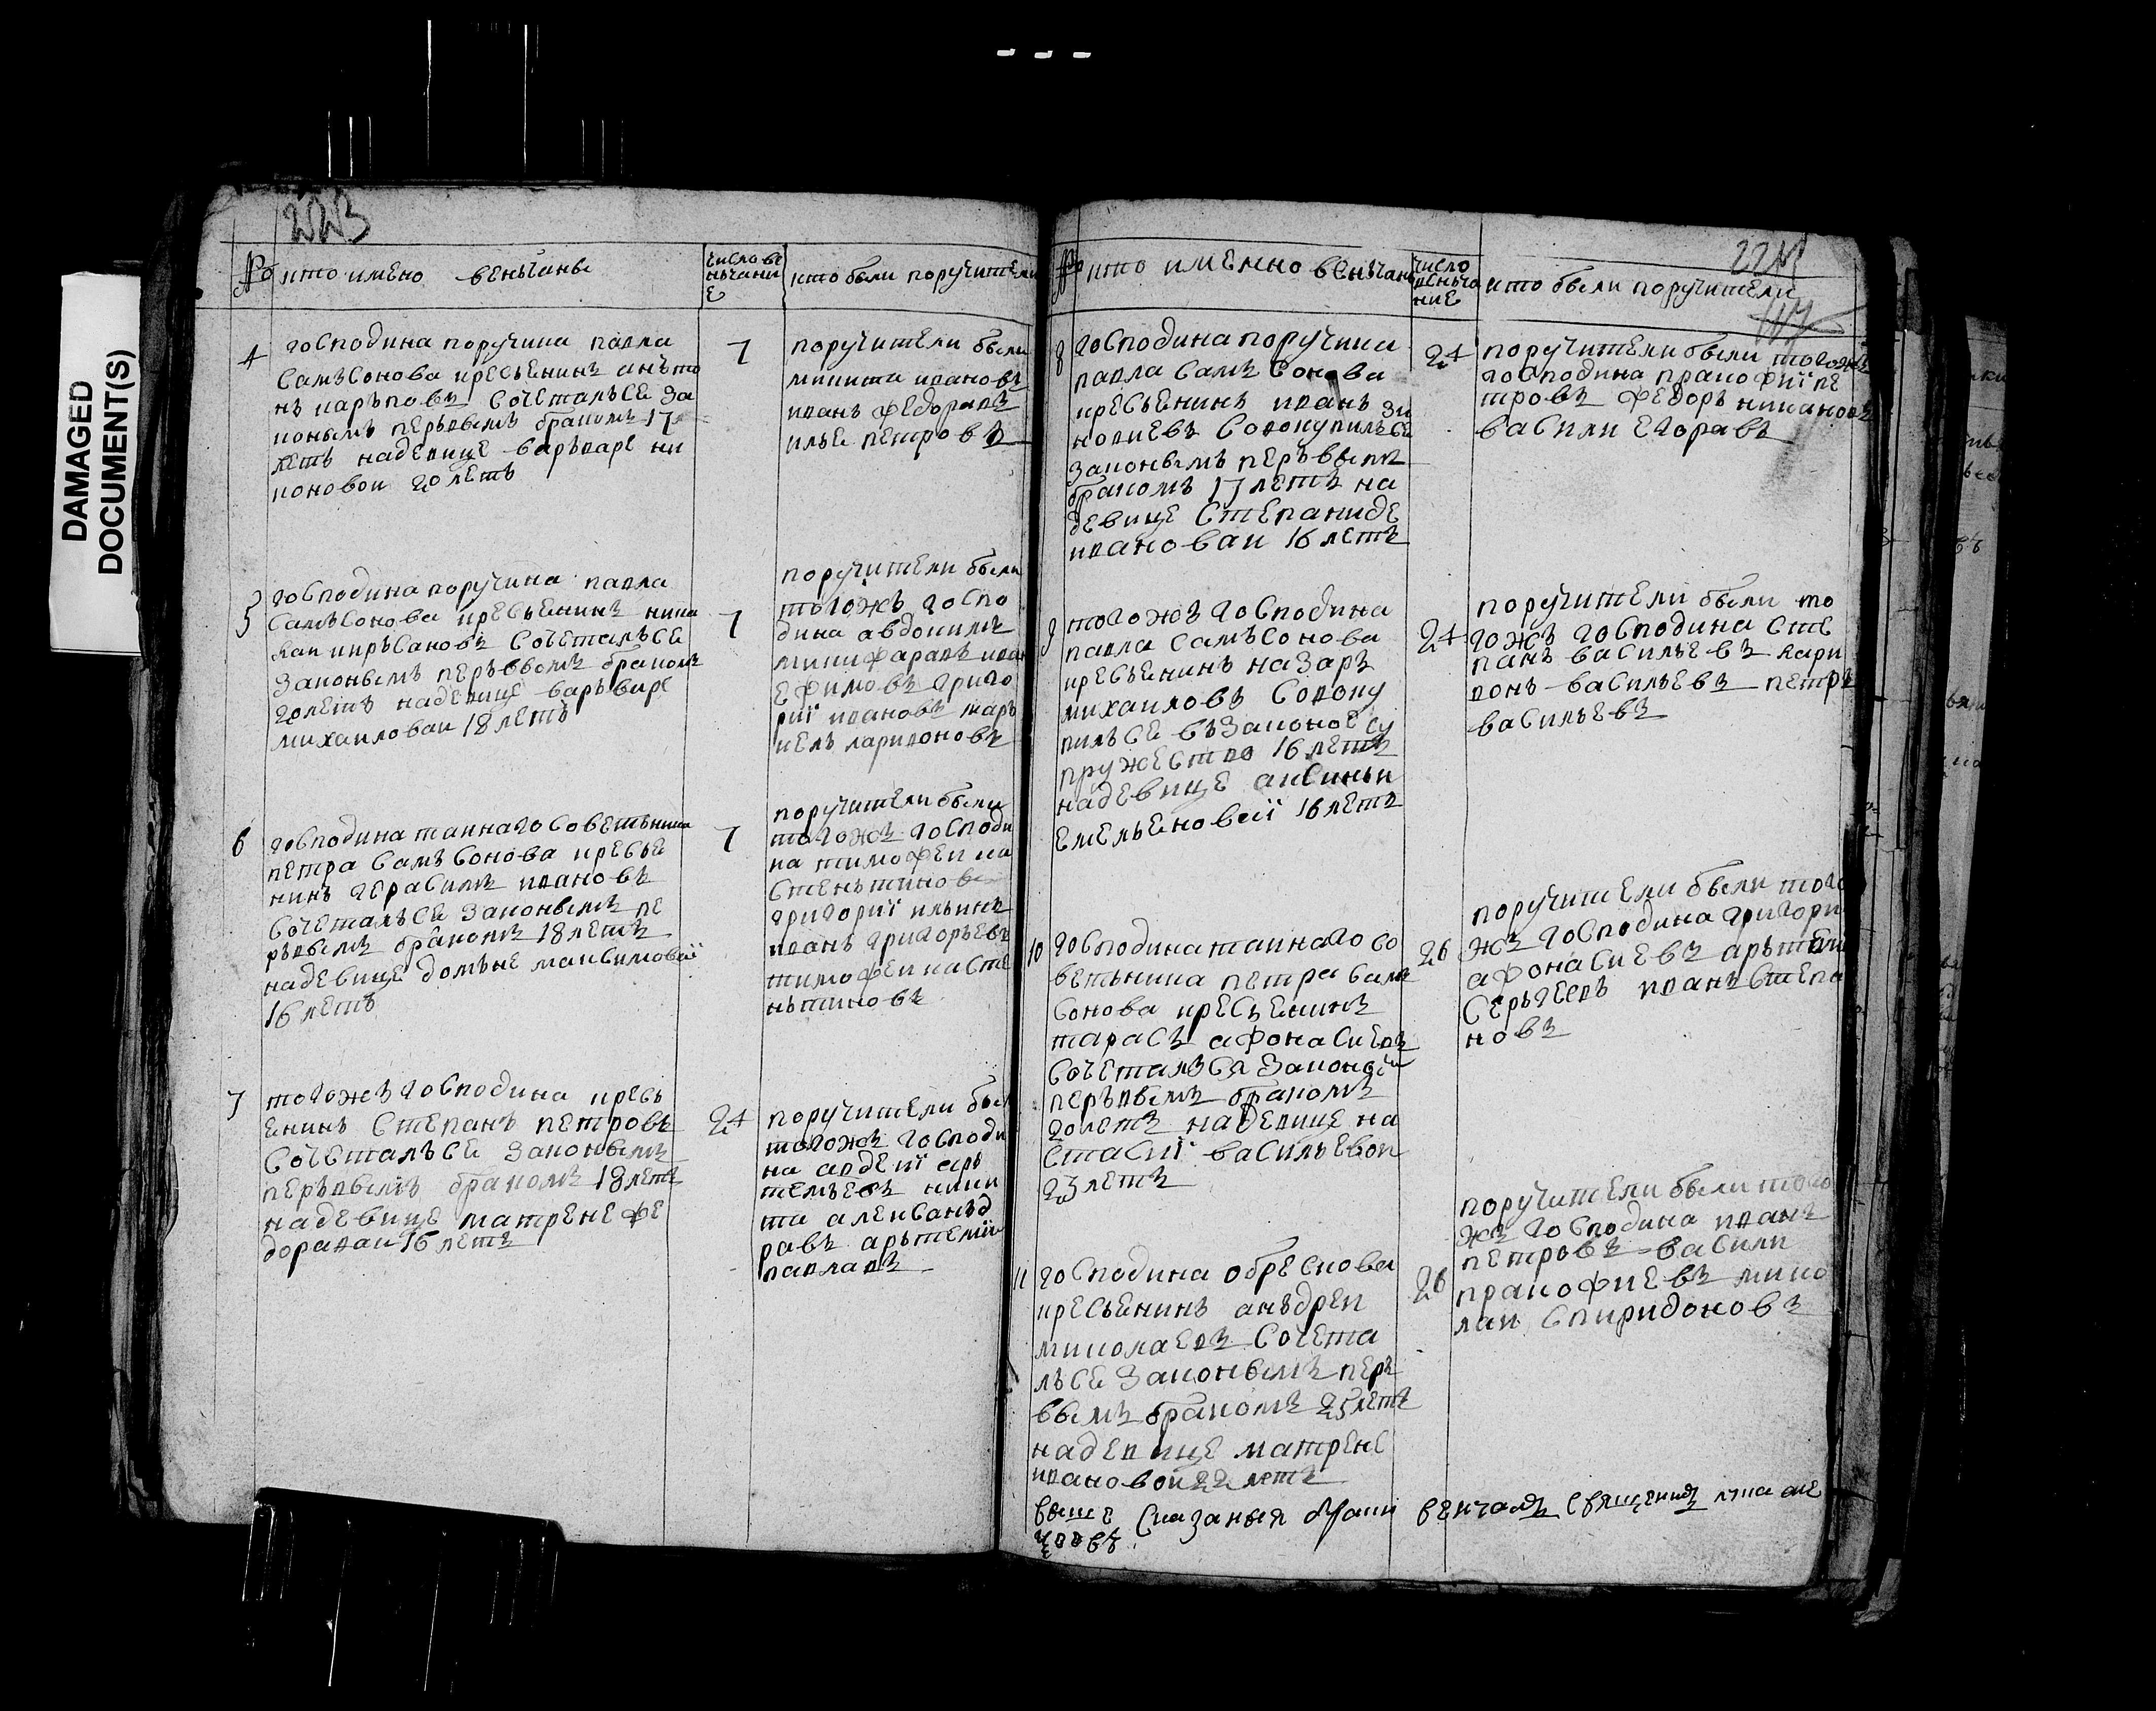 DAMAGED
DOCUMENT(S)
223
№
кто имено веньчаны
число ве
ньчани
е
кто были поручители
4
господина поручика павла
самъсонова кресьенинъ анъто
нъ каръповъ сочеталъсе за
конымъ перьвымъ бракомъ 17
летъ на девице варъваре ни
коновои 20 летъ
7
поручители были
микита ивановъ
иванъ федоравъ
илье петровъ
5
господина поручика павла
самъсонова кресьенинъ нико
лаи киръсановъ сочеталъсе
законымъ перъвымъ бракомъ
20 летъ на девице варъваре
михаиловаи 18 летъ
7
поручители были
тогожъ госпо
дина авдокимъ
микифаравъ иван
ефимовъ григо
риі ивановъ марь
келъ ларивоновъ
6
господина таинаго советьника
петра самъсонова кресье
нинъ герасимъ ивановъ
сочеталъсе законымъ пе
рьвымъ бракомъ 18 летъ
на девице домъне максимоваі
16 летъ
7
поручители были
тогожъ господи
на тимофеи ка
стеньтинов
григориі ильинъ
иванъ григорьевъ
тимофеи касте
ньтиновъ
7
тогожъ господина кресь
енинъ степанъ петровъ
сочеталъсе законымъ
перъвымъ бракомъ 18 летъ
на девице матрене фе
дораваи 16 летъ
24
поручители был
тогожъ господи
на авдеиі аръ
темъевъ ники
та алексаньд
равъ арътемиі
павлавъ
224
№
кто именно веньчаны
число
веньча
ние
кто были поручители
8
господина поручика
павла самъсонова
кресьенинъ иванъ зи
новиевъ совокупилъсе
законымъ перъвымъ
бракомъ 17 летъ на
девице степаниде
ивановаи 16 летъ
24
поручители были тогоже
господина пракофиі пе
тровъ федоръ никановъ
васили егоравъ
9
тогожъ господина
павла самъсонова
кресьенинъ назаръ
михаиловъ совоку
пилъсе въ законое су
пружество 16 летъ
на девице аксиньи
емельеновеі 16 летъ
24
поручители были то
гожъ господина сте
панъ васильевъ лари
вонъ васильевъ петръ
васильевъ
10
господина таинаго со
ветьника петра самъ
сонова кресьенинъ
тарасъ афонасиевъ
сочеталъся законы
перъвымъ бракомъ
20 летъ на девице на
стасиі васильевои
23 летъ
26
поручители были того
жъ господина григори
афонасиевъ арътеми
серьгеевъ иванъ степа
новъ
11
господина обрескова
кресьенинъ аньдреи
миколаевъ сочета
лъсе законымъ перъ
вымъ бракомъ 25 летъ
на девице матрене
ивановои 22 летъ
26
поручители были того
жъ господина иванъ
петровъ васили
пракофиевъ мико
лаи спиридоновъ
выше сказаныя браки венчалъ священикъ